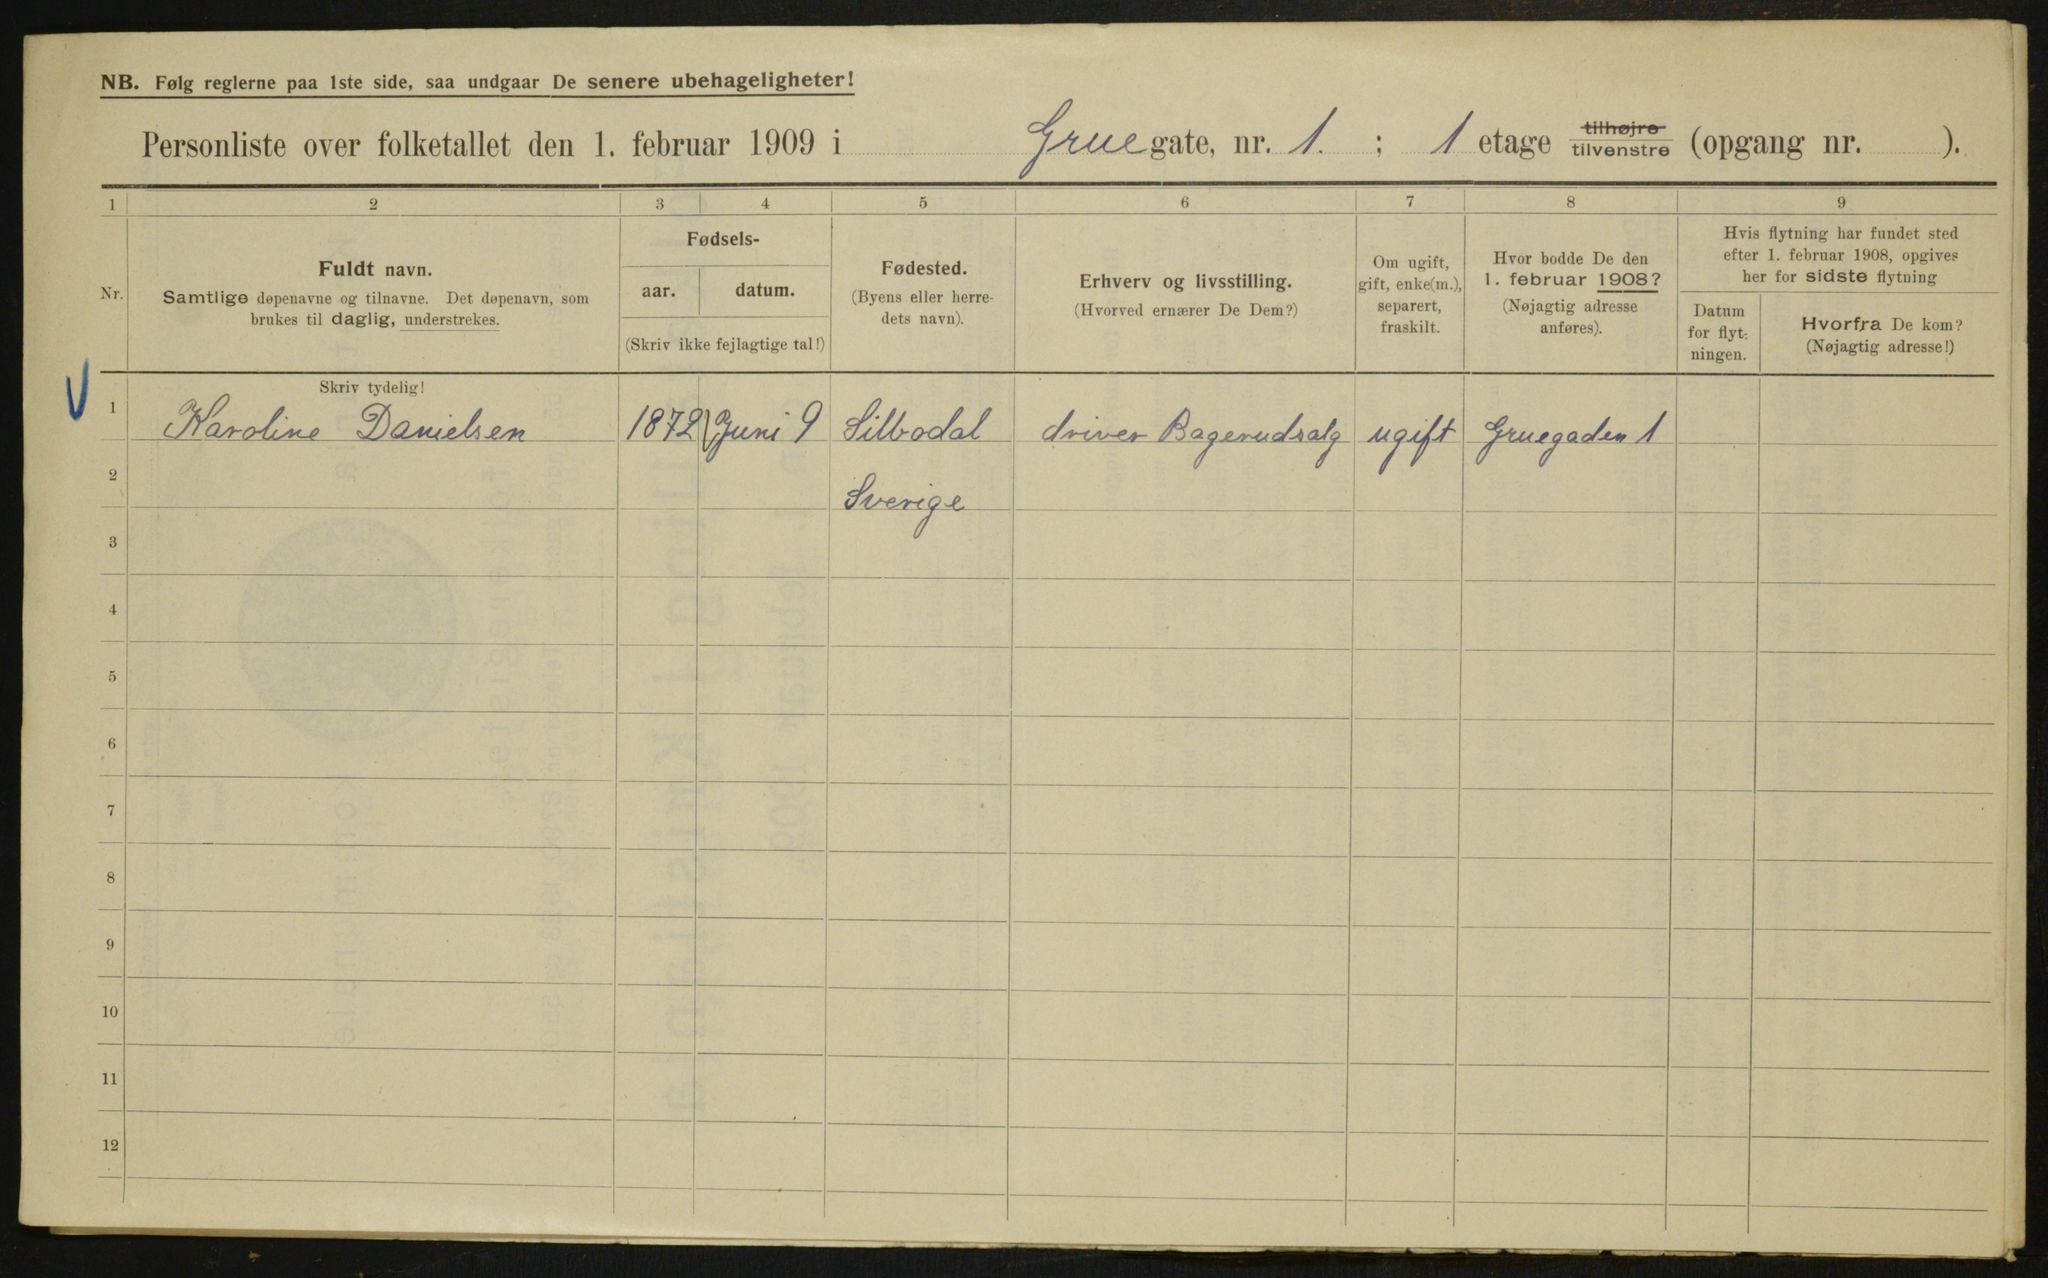 NB. Følg reglerne paa 1ste side, saa undgaar De senere ubehageligheter!
Personliste over folketallet den 1. februar 1909 i Gruegate, nr. 1. ; 1 etage tilhøjre tilvenstre (opgang nr. ).
1 2 3 4 5 6 7 8 9
Nr.
Fuldt navn.
Samtlige døpenavne og tilnavne. Det døpenavn, som
brukes til daglig, understrekes.
Fødsels-
aar. datum.
(Skriv ikke fejlagtige tal!)
Fødested.
(Byens eller herre-
dets navn).
Erhverv og livsstilling.
(Hvorved ernærer De Dem?)
Om ugift,
gift, enke(m.),
separert,
fraskilt.
Hvor bodde De den
1. februar 1908?
(Nøjagtig adresse
anføres).
Hvis flytning har fundet sted
efter 1. februar 1908, opgives
her for sidste flytning
Datum
for flyt-
ningen.
Hvorfra De kom?
(Nøjagtig adresse!)
Skriv tydelig!
1 Karoline Danielsen 1872 Juni 9 Silbodal driver Bagerudsalg ugift Gruegaden 1
2 Sverige
3
4
5
6
7
8
9
10
11
12